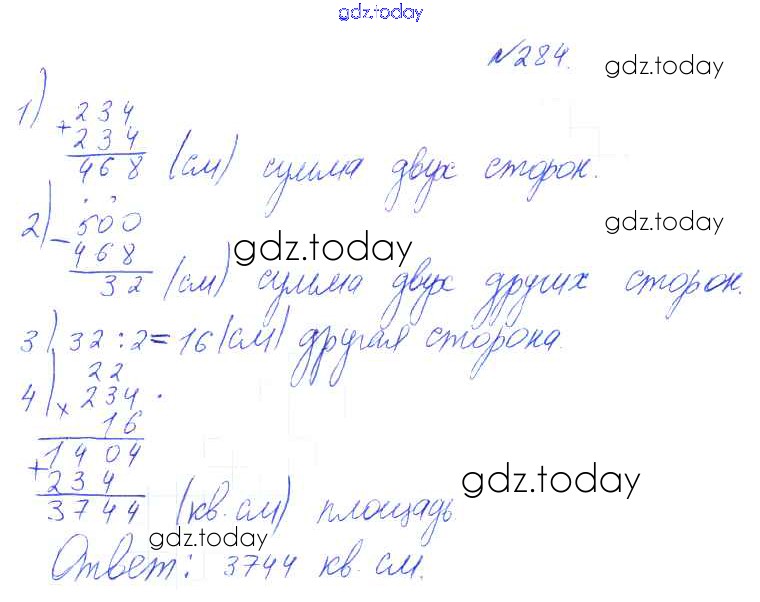 gdz.today
№284.
gdz.today
1) 234
+ 234
468 (см) сумма двух сторон.
gdz.today
2) 500
- 468
gdz.today
32 (см) сумма двух других сторон.
3) 32 : 2 = 16 (см) другая сторона.
22
4) x 234
16
1404
+ 234
gdz.today
3744 (кв. см) площадь
gdz.today
Ответ: 3744 кв. см.